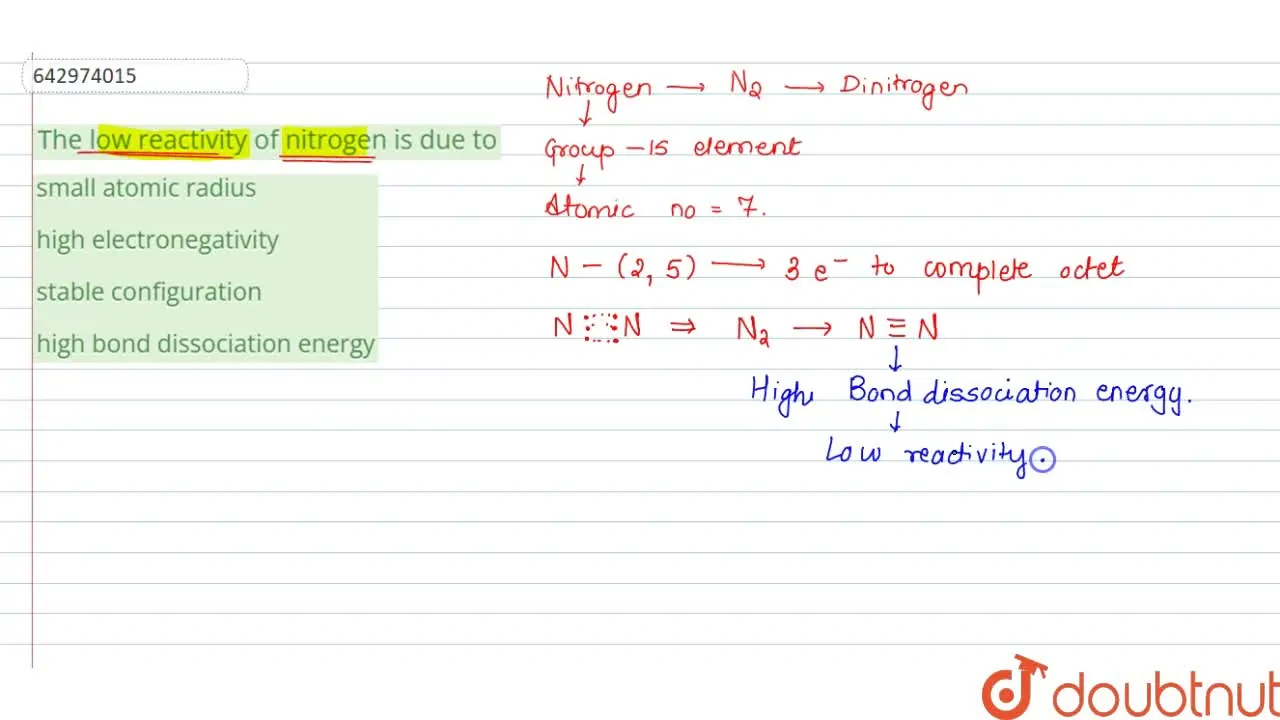 642974015
The low reactivity of nitrogen is due to
small atomic radius
high electronegativity
stable configuration
high bond dissociation energy
Nitrogen → N₂ → Dinitrogen
↓
Group - 15 element
↓
Atomic no = 7.
N - (2, 5) → 3 e⁻ to complete octet
N ⁝⁝ N ⇒ N₂ → N ≡ N
↓
High Bond dissociation energy.
↓
Low reactivity.
doubtnut